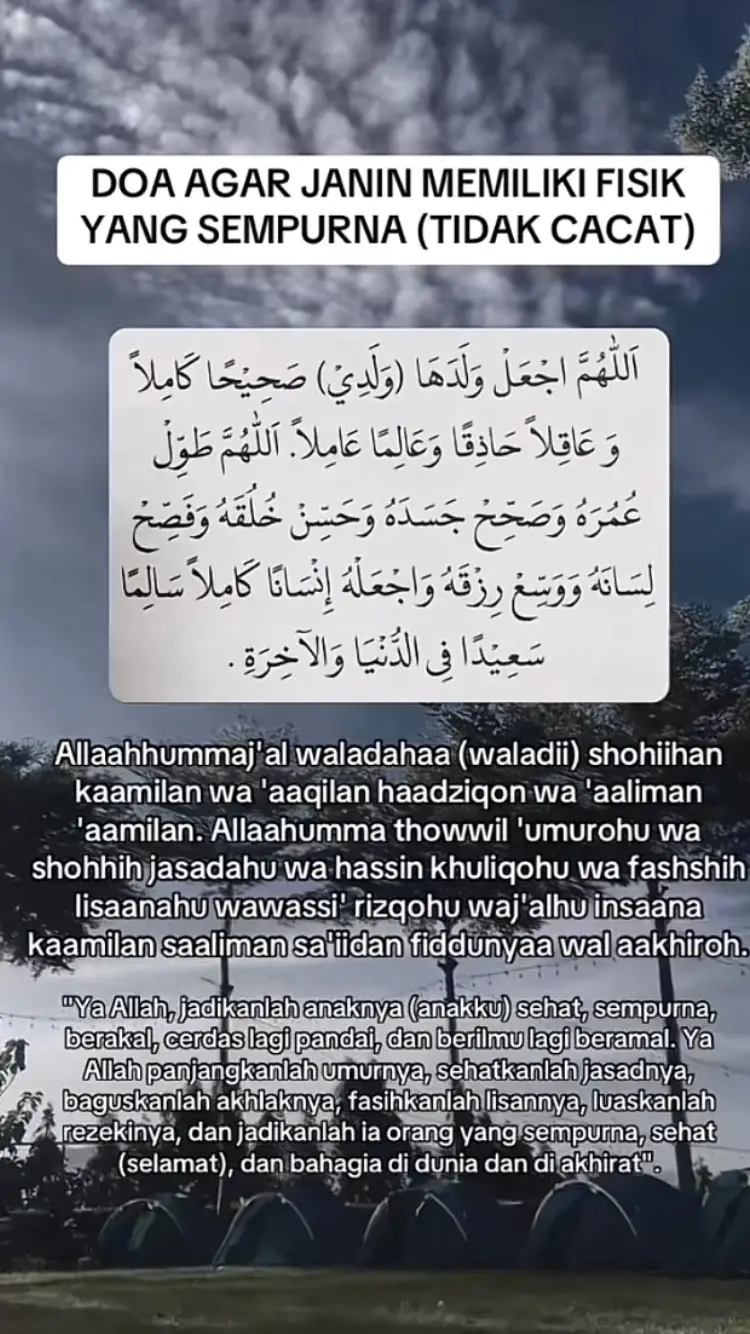 DOA AGAR JANIN MEMILIKI FISIK
YANG SEMPURNA (TIDAK CACAT)
اَللّٰهُمَّ اجْعَلْ وَلَدَهَا (وَلَدِيْ) صَحِيْحًا كَامِلاً
وَ عَاقِلاً حَاذِقًا وَعَالِمًا عَامِلاً. اَللّٰهُمَّ طَوِّلْ
عُمُرَهُ وَصَحِّحْ جَسَدَهُ وَحَسِّنْ خُلُقَهُ وَفَصِّحْ
لِسَانَهُ وَوَسِّعْ رِزْقَهُ وَاجْعَلْهُ إِنْسَانًا كَامِلاً سَالِمًا
سَعِيْدًا فِى الدُّنْيَا وَالآخِرَةِ .
Allaahhummaj'al waladahaa (waladii) shohiihan
kaamilan wa 'aaqilan haadziqon wa 'aaliman
'aamilan. Allaahumma thowwil 'umurohu wa
shohhih jasadahu wa hassin khuliqohu wa fashshih
lisaanahu wawassi' rizqohu waj'alhu insaana
kaamilan saaliman sa'iidan fiddunyaa wal aakhiroh.
"Ya Allah, jadikanlah anaknya (anakku) sehat, sempurna,
berakal, cerdas lagi pandai, dan berilmu lagi beramal. Ya
Allah panjangkanlah umurnya, sehatkanlah jasadnya,
baguskanlah akhlaknya, fasihkanlah lisannya, luaskanlah
rezekinya, dan jadikanlah ia orang yang sempurna, sehat
(selamat), dan bahagia di dunia dan di akhirat".